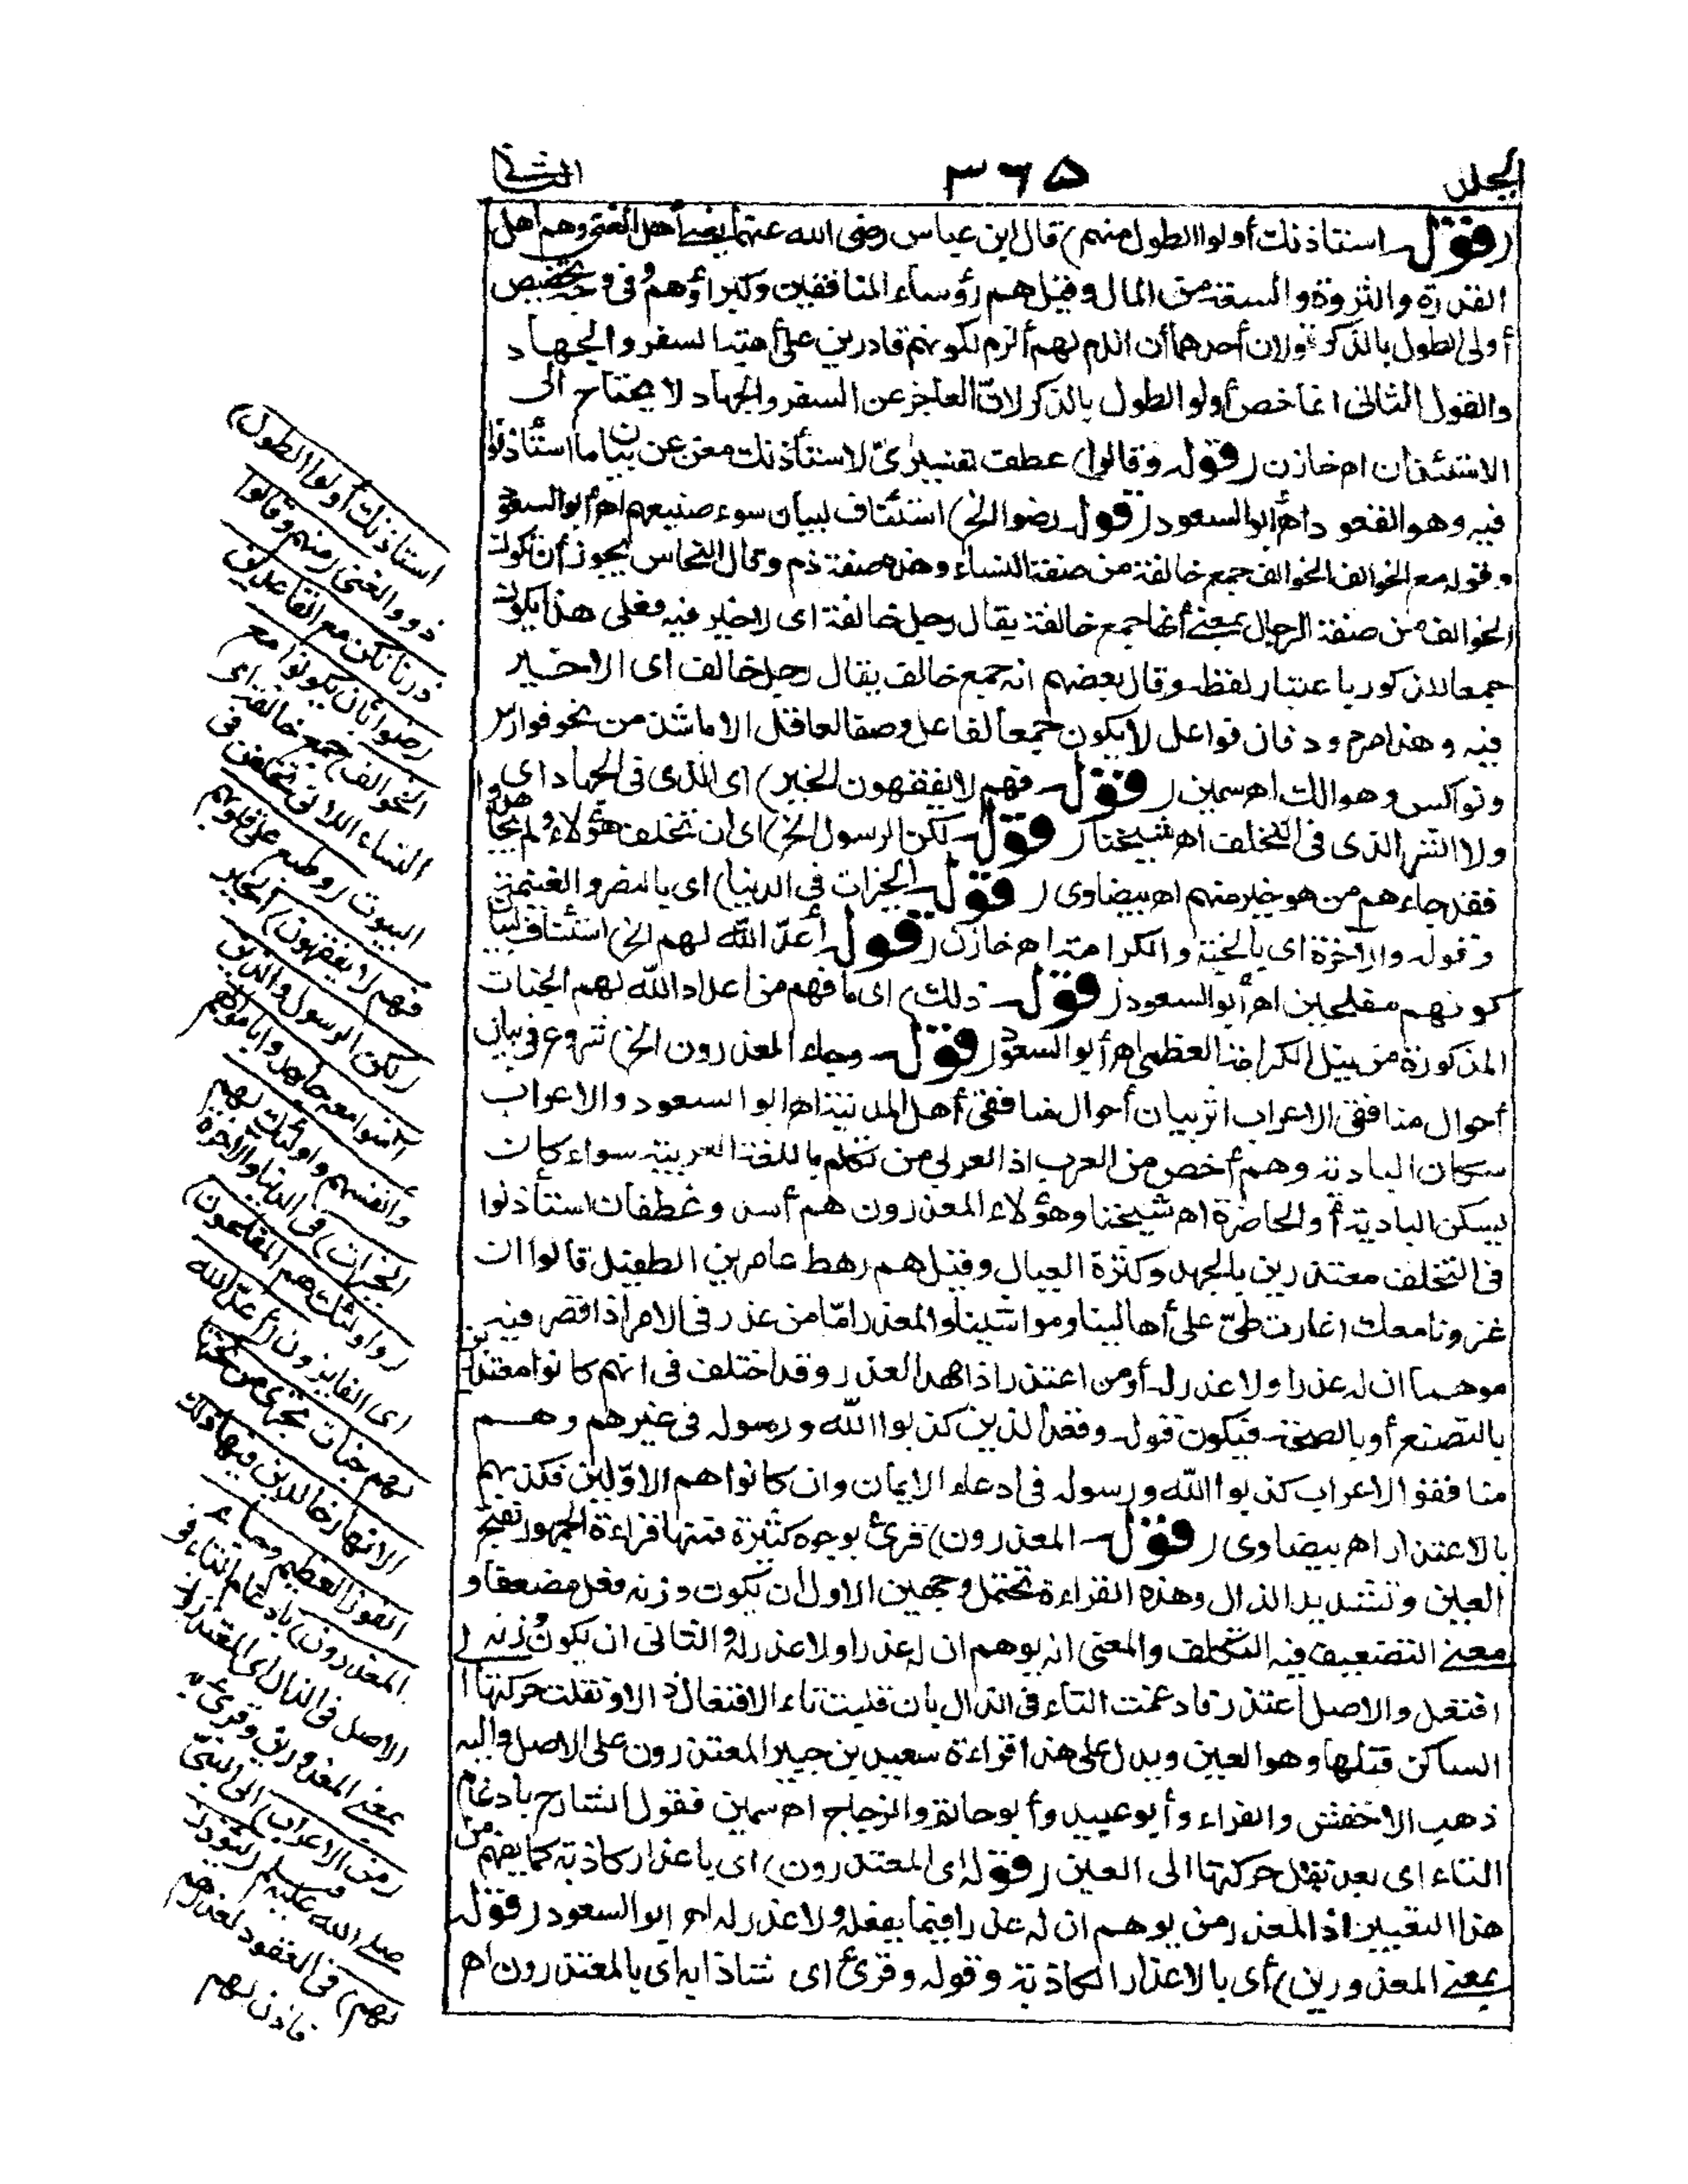 الجلد
٣٦٥
الثاني
(قوله استاذنك أولوا الطول منهم) قال ابن عباس رضى الله عنهما يعنى أهل الغنى وهم أهل
القدرة والثروة والسعة من المال وقيل هم رؤساء المنافقين وكبراؤهم وفى تخصيص
أولى الطول بالذكر قولان أحدهما أن الذم لهم ألزم لكونهم قادرين على أهبة السفر والجهاد
والقول الثانى انما خص أولوا الطول بالذكر لان العاجز عن السفر والجهاد لا يحتاج الى
الاستئذان اه خازن (قوله وقالوا) عطف تفسيرى لاستأذنك مغن عن بيان ما استأذنوا
فيه وهو القعود اه أبو السعود (قوله رضوا الخ) استئناف لبيان سوء صنيعهم اه أبو السعود
وقوله مع الخوالف الخوالف جمع خالفة من صفة النساء وهذه صفة ذم وقال النحاس يجوز أن تكون
الخوالف من صفة الرجال بمعنى أنها جمع خالفة يقال رجل خالفة اى لا خير فيه فعلى هذا يكون
جمعا للذكور باعتبار لفظه وقال بعضهم انه جمع خالف يقال رجل خالف اى لا خير
فيه وهذا مردود فان فواعل لا يكون جمعا لفاعل وصفا لعاقل الا ما شذ من نحو فوارس
ونواكس وهوالك اه سمين (قوله فهم لا يفقهون الخير) اى الذى فى الجهاد اى
ولا الشر الذى فى التخلف اه شيخنا (قوله لكن الرسول الخ) اى ان تخلف هؤلاء ولم يجاهدوا
فقد جاهد من هو خير منهم اه بيضاوى (قوله الخيرات فى الدنيا) اى بالنصر والغنيمة
وقوله والآخرة اى بالجنة والكرامة اه خازن (قوله أعد الله لهم الخ) استئناف لبيان
كونهم مفلحين اه أبو السعود (قوله ذلك) اى ما فهم من اعداد الله لهم الجنات
المذكورة من نيل الكرامة العظمى اه أبو السعود (قوله وجاء المعذرون الخ) شروع فى بيان
أحوال منافقى الاعراب اثر بيان أحوال منافقى أهل المدينة اه ابو السعود والاعراب
سكان البادية وهم أخص من العرب اذ العربى من تكلم باللغة العربية سواء كان
يسكن البادية أو الحاضرة اه شيخنا وهؤلاء المعذرون هم أسد وغطفان استأذنوا
فى التخلف معتذرين بالجهد وكثرة العيال وقيل هم رهط عامر بن الطفيل قالوا ان
غزونا معك اغارت طيّ على أهالينا ومواشينا والمعذر امّا من عذر فى الامر اذا قصر فيه
موهما ان له عذرا ولا عذر له أو من اعتذر اذا مهد العذر وقد اختلف فى انهم كانوا معتذرين
بالتصنع أو بالصحة فيكون قوله وقعد الذين كذبوا الله ورسوله فى غيرهم وهم
منافقوا الاعراب كذبوا الله ورسوله فى ادعاء الايمان وان كانوا هم الاوّلين فكذبهم
بالاعتذار اه بيضاوى (قوله المعذرون) قرئ بوجوه كثيرة فمنها قراءة الجمهور بفتح
العين وتشديد الذال وهذه القراءة تحتمل وجهين الاول ان يكون وزنه فعل مضعفا و
معنى التضعيف فيه التكلف والمعنى انه يوهم ان له عذرا ولا عذر له والثانى ان يكون وزنه
افتعل والاصل اعتذر فادغمت التاء فى الذال بان قلبت تاء الافتعال ذالا ونقلت حركتها
الساكن قبلها وهو العين ويدل على هذا قراءة سعيد بن جبير المعتذرون على الاصل واليه
ذهب الاخفش والفراء وأبو عبيد وأبو حاتم والزجاج اه سمين فقول الشارح بادغام
التاء اى بعد نقل حركتها الى العين (قوله اى المعتذرون) اى باعذار كاذبة كما يفهم من
هذا التعبير اذ المعذر من يوهم ان له عذرا فيما يفعله ولا عذر له اه ابو السعود (قوله
بمعنى المعذورين) أى بالاعذار الكاذبة وقوله وقرئ اى شاذا به اى بالمعتذرون اه
استاذنك أولوا الطول)
ذوو الغنى (منهم وقالوا
ذرنا نكن مع القاعدين
رضوا بان يكونوا مع
الخوالف) جمع خالفة اى
النساء اللاتى تخلفن فى
البيوت (وطبع على قلوبهم
فهم لا يفقهون) الخير
(لكن الرسول والذين
آمنوا معه جاهدوا باموالهم
وأنفسهم واولئك لهم
الخيرات) فى الدنيا والآخرة
(واولئك هم المفلحون)
اى الفايزون (أعدّ الله
لهم جنات تجرى من تحتها
الانهار خالدين فيها ذلك
الفوز العظيم وجاء
المعذرون) بادغام التاء فى
الاصل فى الذال اى المعتذرون
بمعنى المعذورين وقرئ به
(من الاعراب) الى النبىّ
صلى الله عليه وسلم (ليؤذن
لهم) فى القعود لعذرهم
فاذن لهم